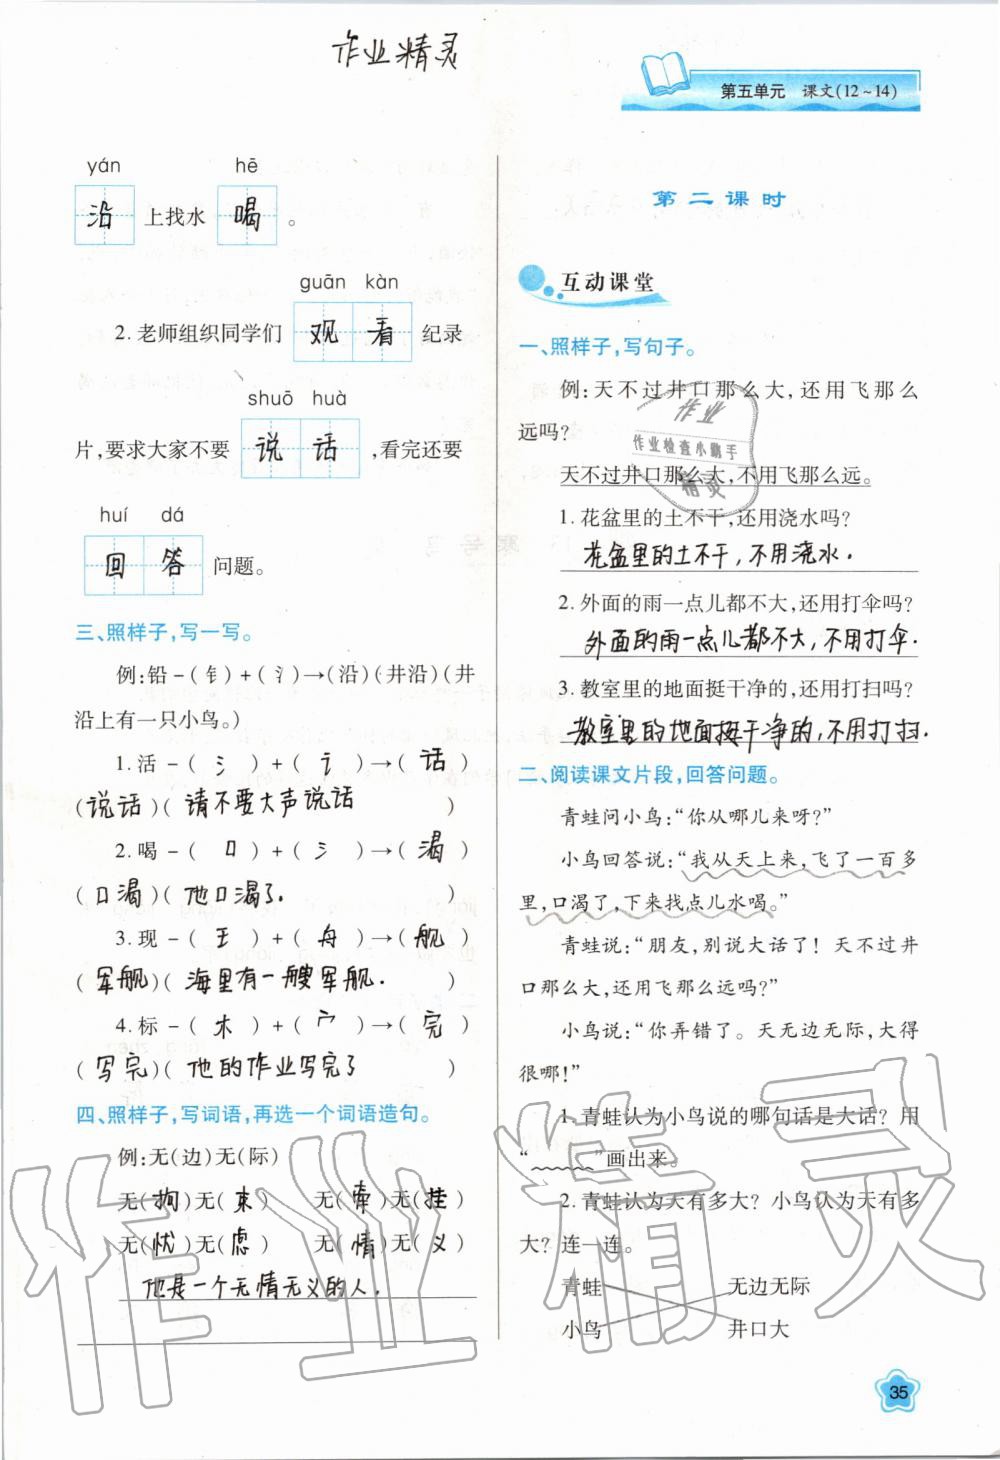 作业精灵
第五单元 课文(12~14)
yán hē
沿上找水喝。
guān kàn
2.老师组织同学们观看纪录
shuō huà
片,要求大家不要说话,看完还要
huí dá
回答问题。
三、照样子,写一写。
例:铅-(钅)+(氵)→(沿)(井沿)(井
沿上有一只小鸟。)
1.活-(氵)+(讠)→(话)
(说话)(请不要大声说话)
2.喝-(口)+(氵)→(渴)
(口渴)(他口渴了.)
3.现-(王)+(舟)→(舰)
(军舰)(海里有一艘军舰.)
4.标-(木)+(宀)→(完)
(写完)(他的作业写完了)
四、照样子,写词语,再选一个词语造句。
例:无(边)无(际)
无(拘)无(束) 无(牵)无(挂)
无(忧)无(虑) 无(情)无(义)
他是一个无情无义的人.
第二课时
互动课堂
一、照样子,写句子。
例:天不过井口那么大,还用飞那么
远吗?
天不过井口那么大,不用飞那么远。
1.花盆里的土不干,还用浇水吗?
花盆里的土不干,不用浇水.
2.外面的雨一点儿都不大,还用打伞吗?
外面的雨一点儿都不大,不用打伞.
3.教室里的地面挺干净的,还用打扫吗?
教室里的地面挺干净的,不用打扫.
二、阅读课文片段,回答问题。
青蛙问小鸟:“你从哪儿来呀?”
小鸟回答说:“我从天上来,飞了一百多
里,口渴了,下来找点儿水喝。”
青蛙说:“朋友,别说大话了！天不过井
口那么大,还用飞那么远吗?”
小鸟说:“你弄错了。天无边无际,大得
很哪!”
1.青蛙认为小鸟说的哪句话是大话?用
“﹏﹏”画出来。
2.青蛙认为天有多大?小鸟认为天有多
大?连一连。
青蛙 无边无际
小鸟 井口大
35
作业
作业检查小助手
精灵
作业精灵